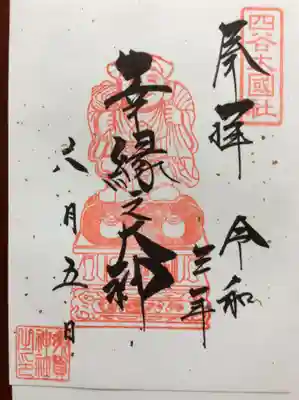 四谷大國社
奉拝
令和
三年
幸縁之大神
八月五日
須賀
神社
之印